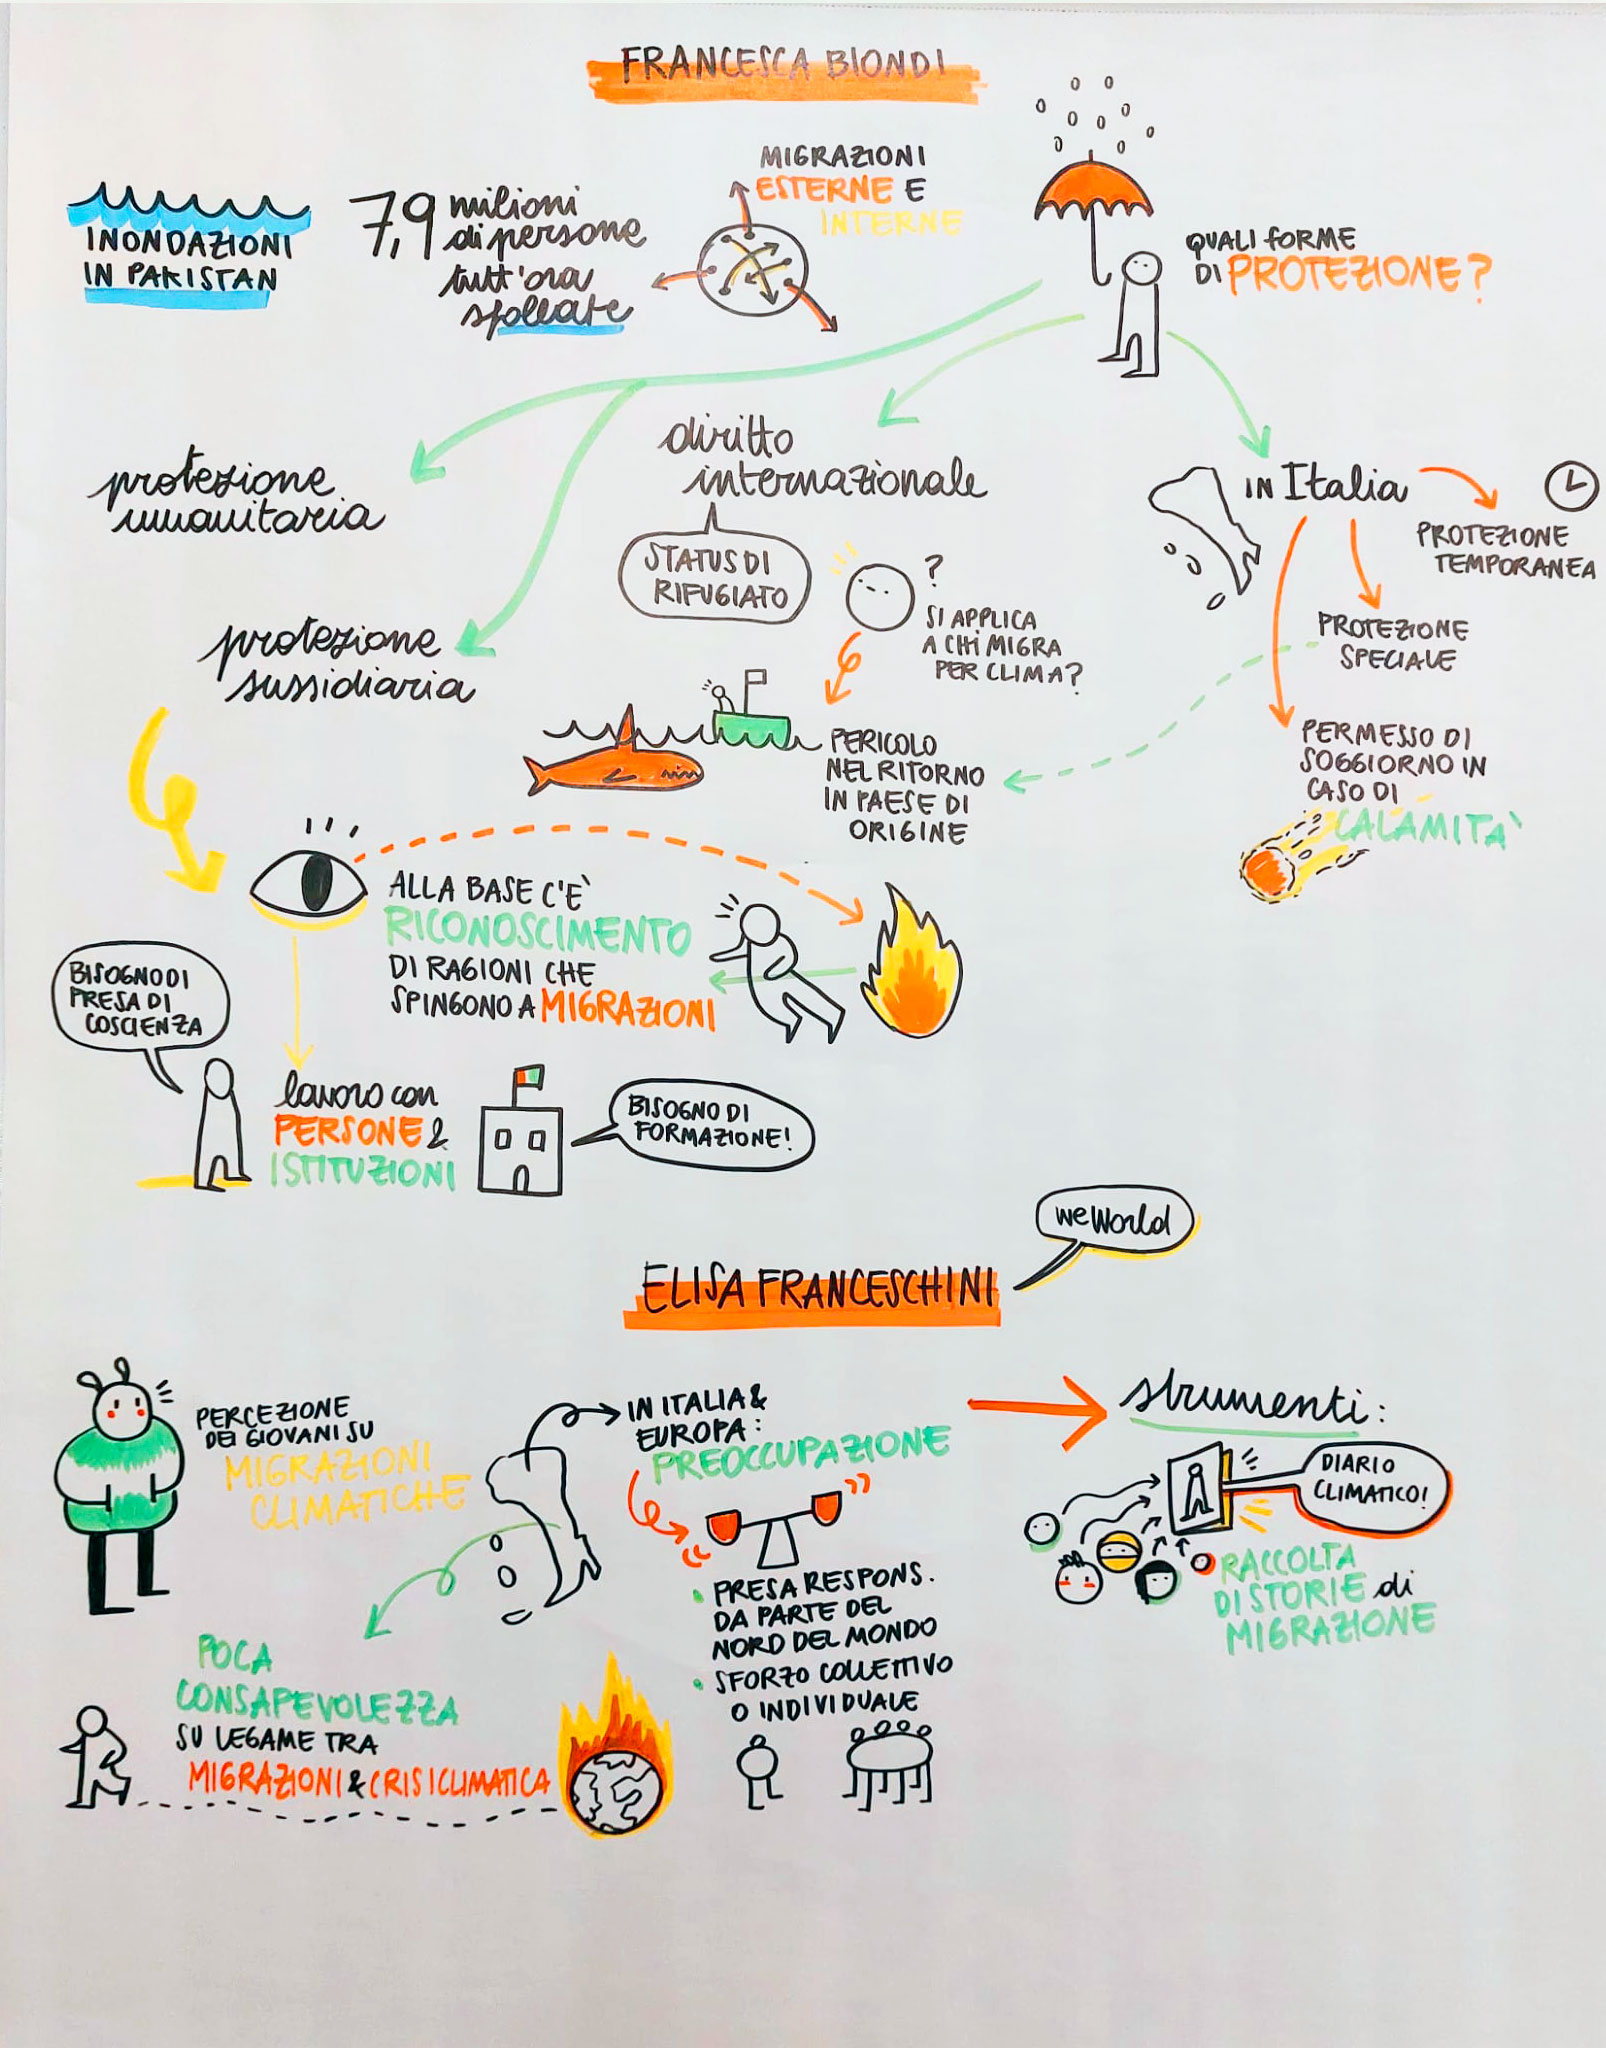 FRANCESCA BIONDI
INONDAZIONI
IN PAKISTAN
7,9 milioni
di persone
tutt'ora
sfollate
MIGRAZIONI
ESTERNE E
INTERNE
QUALI FORME
DI PROTEZIONE?
protezione
umanitaria
protezione
sussidiaria
diritto
internazionale
STATUS DI
RIFUGIATO
?
SI APPLICA
A CHI MIGRA
PER CLIMA?
PERICOLO
NEL RITORNO
IN PAESE DI
ORIGINE
IN Italia
PROTEZIONE
TEMPORANEA
PROTEZIONE
SPECIALE
PERMESSO DI
SOGGIORNO IN
CASO DI
CALAMITA'
ALLA BASE C'E'
RICONOSCIMENTO
DI RAGIONI CHE
SPINGONO A MIGRAZIONI
BISOGNO DI
PRESA DI
COSCIENZA
lavoro con
PERSONE &
ISTITUZIONI
BISOGNO DI
FORMAZIONE!
weWorld
ELISA FRANCESCHINI
PERCEZIONE
DEI GIOVANI SU
MIGRAZIONI
CLIMATICHE
IN ITALIA &
EUROPA:
PREOCCUPAZIONE
PRESA RESPONS.
DA PARTE DEL
NORD DEL MONDO
SFORZO COLLETTIVO
O INDIVIDUALE
POCA
CONSAPEVOLEZZA
SU LEGAME TRA
MIGRAZIONI & CRISI CLIMATICA
strumenti:
DIARIO
CLIMATICO!
RACCOLTA
DI STORIE di
MIGRAZIONE